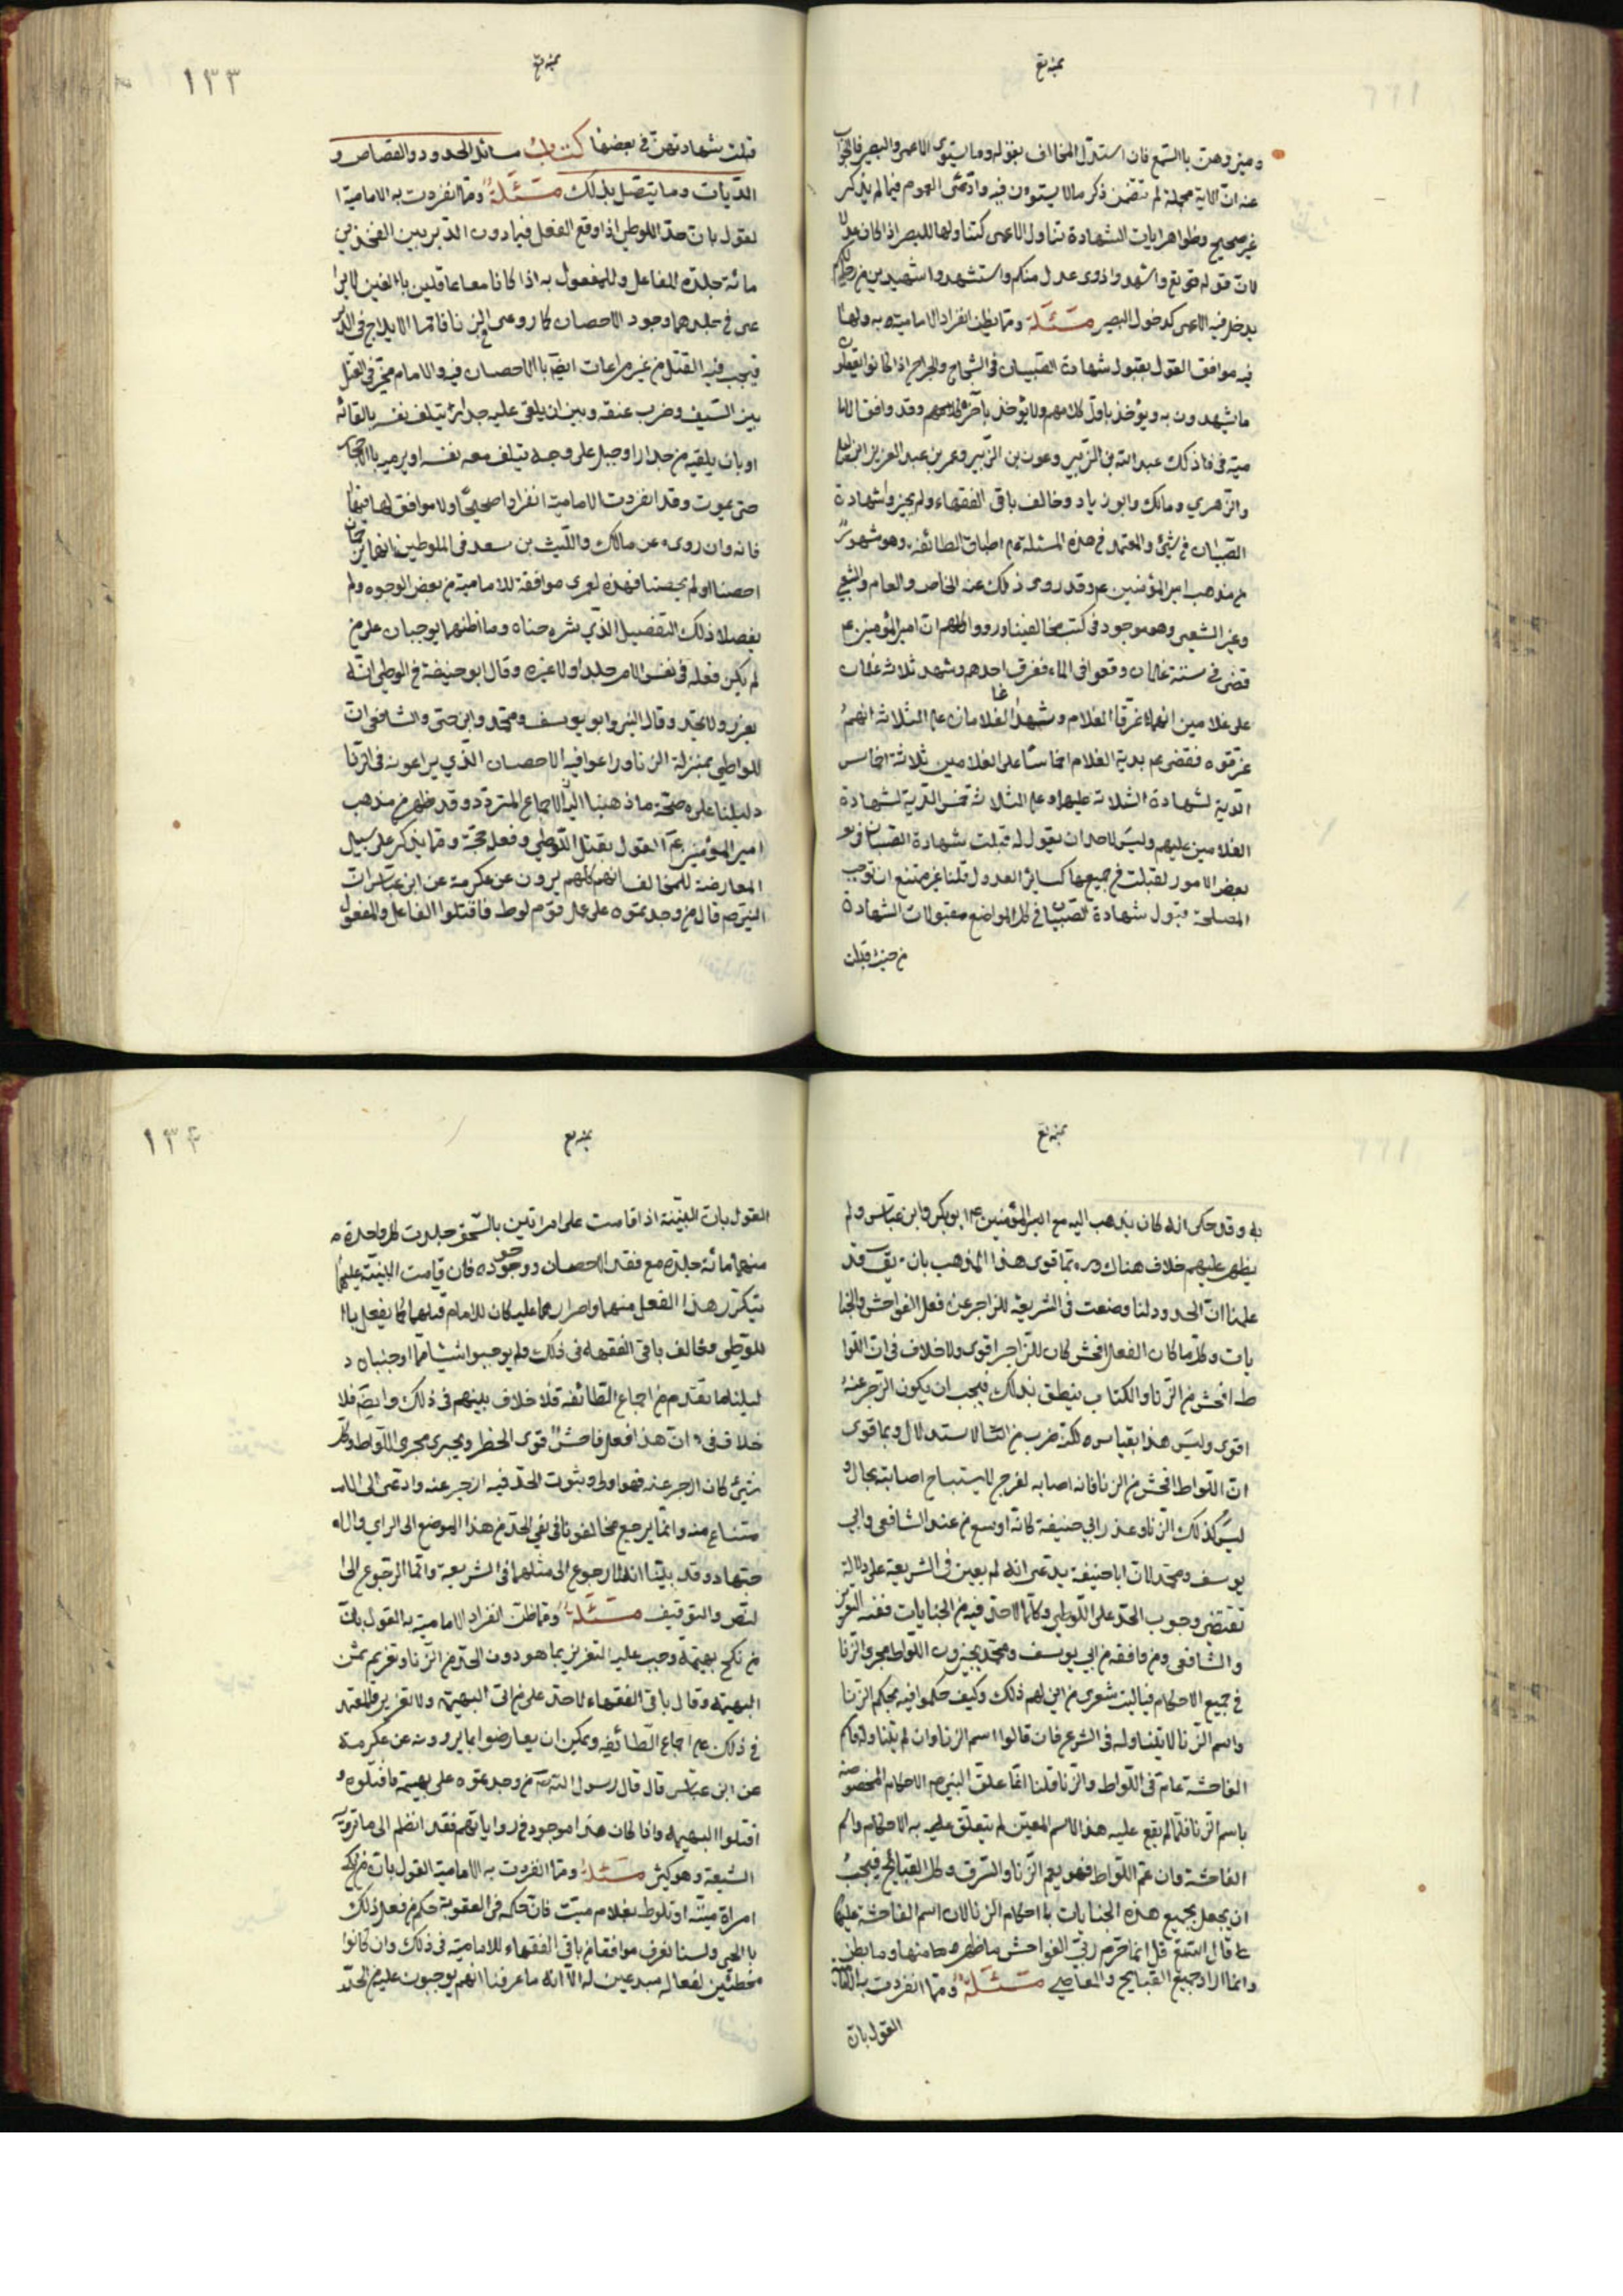 بمنه تع
وميزوهن بالسمع فان استدل المخالف بقوله وما يستوى الاعمى والبصير فالجواب
عنه ان الآية مجملة لم تتضمن ذكر ما لا يستوون فيه وادعى العموم فيما لم يذكر
غير صحيح وظواهر ايات الشهادة تتناول الاعمى كتناولها للبصير اذا كان عدلا
لان قوله تع واشهدوا ذوى عدل منكم واستشهدوا شهيدين من رجالكم
يدخل فيه الاعمى كدخول البصير مسئلة ومما يظن انفراد الامامية به ولها
فيه موافق القول بقبول شهادة الصبيان فى الشجاج والجراح اذا كانوا يعقلون
ما يشهدون به ويؤخذ باول كلامهم ولا يؤخذ بآخره وقد وافق الاما
مية فى ذلك عبد الله بن الزبير وعروة بن الزبير وعمر بن عبد العزيز وابن ابى ليلى
والزهري ومالك وابو زياد وخالف باقى الفقهاء ولم يجيزوا شهادة
الصبيان فى شئ والمعتمد فى هذه المسئلة على اطباق الطائفة وهو مشهور
من مذهب امير المؤمنين ع وقد روى ذلك عنه الخاص والعام والشيعي
وغير الشيعى وهو موجود فى كتب مخالفينا ورووا كلهم ان امير المؤمنين ع
قضى فى ستة غلمان وقعوا فى الماء فغرق احدهم وشهد ثلاثة غلمان
على غلامين انهما غرقا الغلام وشهد الغلامان على الثلاثة انهم
غرقوه فقضى ع بدية الغلام اخماسا على الغلامين ثلاثة اخماس
الدية لشهادة الثلاثة عليهما وعلى الثلاثة خمس الدية لشهادة
الغلامين عليهم وليس لاحد ان يقول لو قبلت شهادة الصبيان فى
بعض الامور لقبلت فى جميعها كسائر العدول قلنا غير ممتنع ان توجب
المصلحة قبول شهادة الصبيان فى
من حيث قبلت
بمنه تع
١٣٣
قبلت شهادتهن فى بعضها كتاب مسائل الحدود والقصاص و
الديات وما يتصل بذلك مسئلة ومما انفردت به الامامية ا
لقول بان حد اللوطى اذا وقع الفعل فيما دون الدبر بين الفخذين
مائة جلدة للفاعل وللمفعول به اذا كانا معا عاقلين بالغين لا يرا
عى فى جلدهما وجود الاحصان كما روعى فى الزنا فاما الايلاج فى الدبر
فيجب فيه القتل من غير مراعات ايضا بالاحصان فيه والامام مخير فى القتل
بين السيف وضرب عنقه وبين ان يلقى عليه جدارا يتلف نفسه بالقائه
او بان يلقيه من جدار او جبل على وجه يتلف معه نفسه او يرميه بالاحجار
حتى يموت وقد انفردت الامامية انفرادا صحيحا ولا موافق لها فيها
فانه وان روى عن مالك والليث بن سعد فى المتلوطين انهما يرجمان
احصنا او لم يحصنا فهذه لعمرى موافقة للامامية من بعض الوجوه ولم
يفصلا ذلك التفصيل الذي شرحناه وما اظنهما يوجبان على من
لم يكن فعله فى نفس الامر جلدا ولا غيره وقال ابو حنيفة فى الوطى انه
يعزر ولا يحد وقال البتى وابو يوسف ومحمد وابن حى والشافعى ان
اللواطي بمنزلة الزنا وراعوا فيه الاحصان الذي يراعونه فى الزنا
دليلنا على صحة ما ذهبنا اليه الاجماع المتردد وقد ظهر من مذهب
امير المؤمنين ع القول بقتل اللوطي وفعله حجة ومما يذكر على سبيل
المعارضة للمخالف انهم كلهم يروون عن عكرمة عن ابن عباس ان
النبى ص قال من وجدتموه على عمل قوم لوط فاقتلوا الفاعل والمفعول
بمنه تع
به وقد حكى انه كان يذهب اليه مع امير المؤمنين ع ابو بكر وابن عباس ولم
يظهر عليهم خلاف هناك ومما قوى هذا المذهب بان يق قد
علمنا ان الحدود لنا وضعت فى الشريعة للزاجر عن فعل الفواحش والجنا
يات وكلما كان الفعل افحش كان للزاجر اقوى ولا خلاف فى ان اللوا
ط افحش من الزنا والكتاب ينطق بذلك فيجب ان يكون الزجر عنه
اقوى وليس هذا بقياس لكنه ضرب من الاستدلال وبما قوى
ان اللواط افحش من الزنا فانه اصابه لفرج لا يستباح اصابته بحال و
ليس كذلك الزنا وعذر ابي حنيفة كانه اوسع من عند الشافعى وابي
يوسف ومحمد لان ابا حنيفة يدعى انه لم يعين فى الشريعة على دلالة
تقتضى وجوب الحد على اللوطي وكلما لا حد فيه من الجنايات ففيه التعزير
والشافعى ومن وافقه من ابي يوسف ومحمد يجيزون اللواط مجرى الزنا
فى جميع الاحكام فيا ليت شعرى من اين لهم ذلك وكيف حكموا فيه بحكم الزنا
واسم الزنا لا يتناوله فى الشرع فان قالوا اسم الزنا وان لم يتناوله فاسم
الفاحشة عام فى اللواط والزنا قلنا انما علق النبى ص الاحكام المخصوصة
باسم الزنا فلما لم يقع عليه هذا الاسم المعين لم يتعلق عليه به الاحكام واسم
الفاحشة وان عم اللواط فهو يعم الزنا والسرق وكل القبايح فيجب
ان يجعل بجميع هذه الجنايات با احكام الزنا لان اسم الفاحشة عليها
قال الله تع قل انما حرم ربى الفواحش ما ظهر منها وما بطن
وانما اراد جميع القبايح والمعاصي مسئلة ومما انفردت به
القول بان
بمنه تع
١٣٤
القول بان البينة اذا قامت على امراتين بالسحق جلدت كل واحدة
منهما مائة جلدة مع فقد الاحصان ووجوده فان قامت البينة عليهما
بتكرر هذا الفعل منهما واصرارهما عليه كان للامام قتلهما كما يفعل با
للوطى وخالف باقى الفقهاء فى ذلك ولم يوجبوا شيئا مما اوجبناه د
ليلنا ما تقدم من اجماع الطائفة فلا خلاف بينهم فى ذلك وايضا فلا
خلاف فى ان هذا فعل فاحش قوى الحظر ويجرى مجرى اللواط وكل
شئ كان ازجر عنه فهو اولى وثبوت الحد فيه ازجر عنه وادعى الى الا
متناع منه وانما يرجع مخالفونا فى نفى الحد من هذا الموضع الى الراي والا
جتهاد وقد بينا انه لا رجوع الى مثلهما فى الشريعة وانما الرجوع الى ا
لنص والتوقيف مسئلة ومما ظن انفراد الامامية به القول بان
من نكح بهيمة وجب عليه التعزير بما هو دون الحد من الزنا وتغريم ثمن
البهيمة وقال باقى الفقهاء لا حد على من اتى البهيمة ولا تعزير والمعتمد
فى ذلك على اجماع الطائفة ويمكن ان يعارضوا بما يروونه عن عكرمة
عن ابن عباس قال قال رسول الله ص من وجدتموه على بهيمة فاقتلوه و
اقتلوا البهيمة واذا كان هذا موجودا فى رواياتهم فقد انظم الى ما ترويه
الشيعة وهو كثير مسئلة ومما انفردت به الامامية القول بان من نكح
امراة ميتة او تلوط بغلام ميت فان حكمه فى العقوبة حكم من فعل ذلك
بالحى ولسنا نعرف موافقا من باقى الفقهاء للامامية فى ذلك وان كانوا
مخطئين لفعاله مبدعين له الا انه ما عرفنا انهم يوجبون عليه من الحد